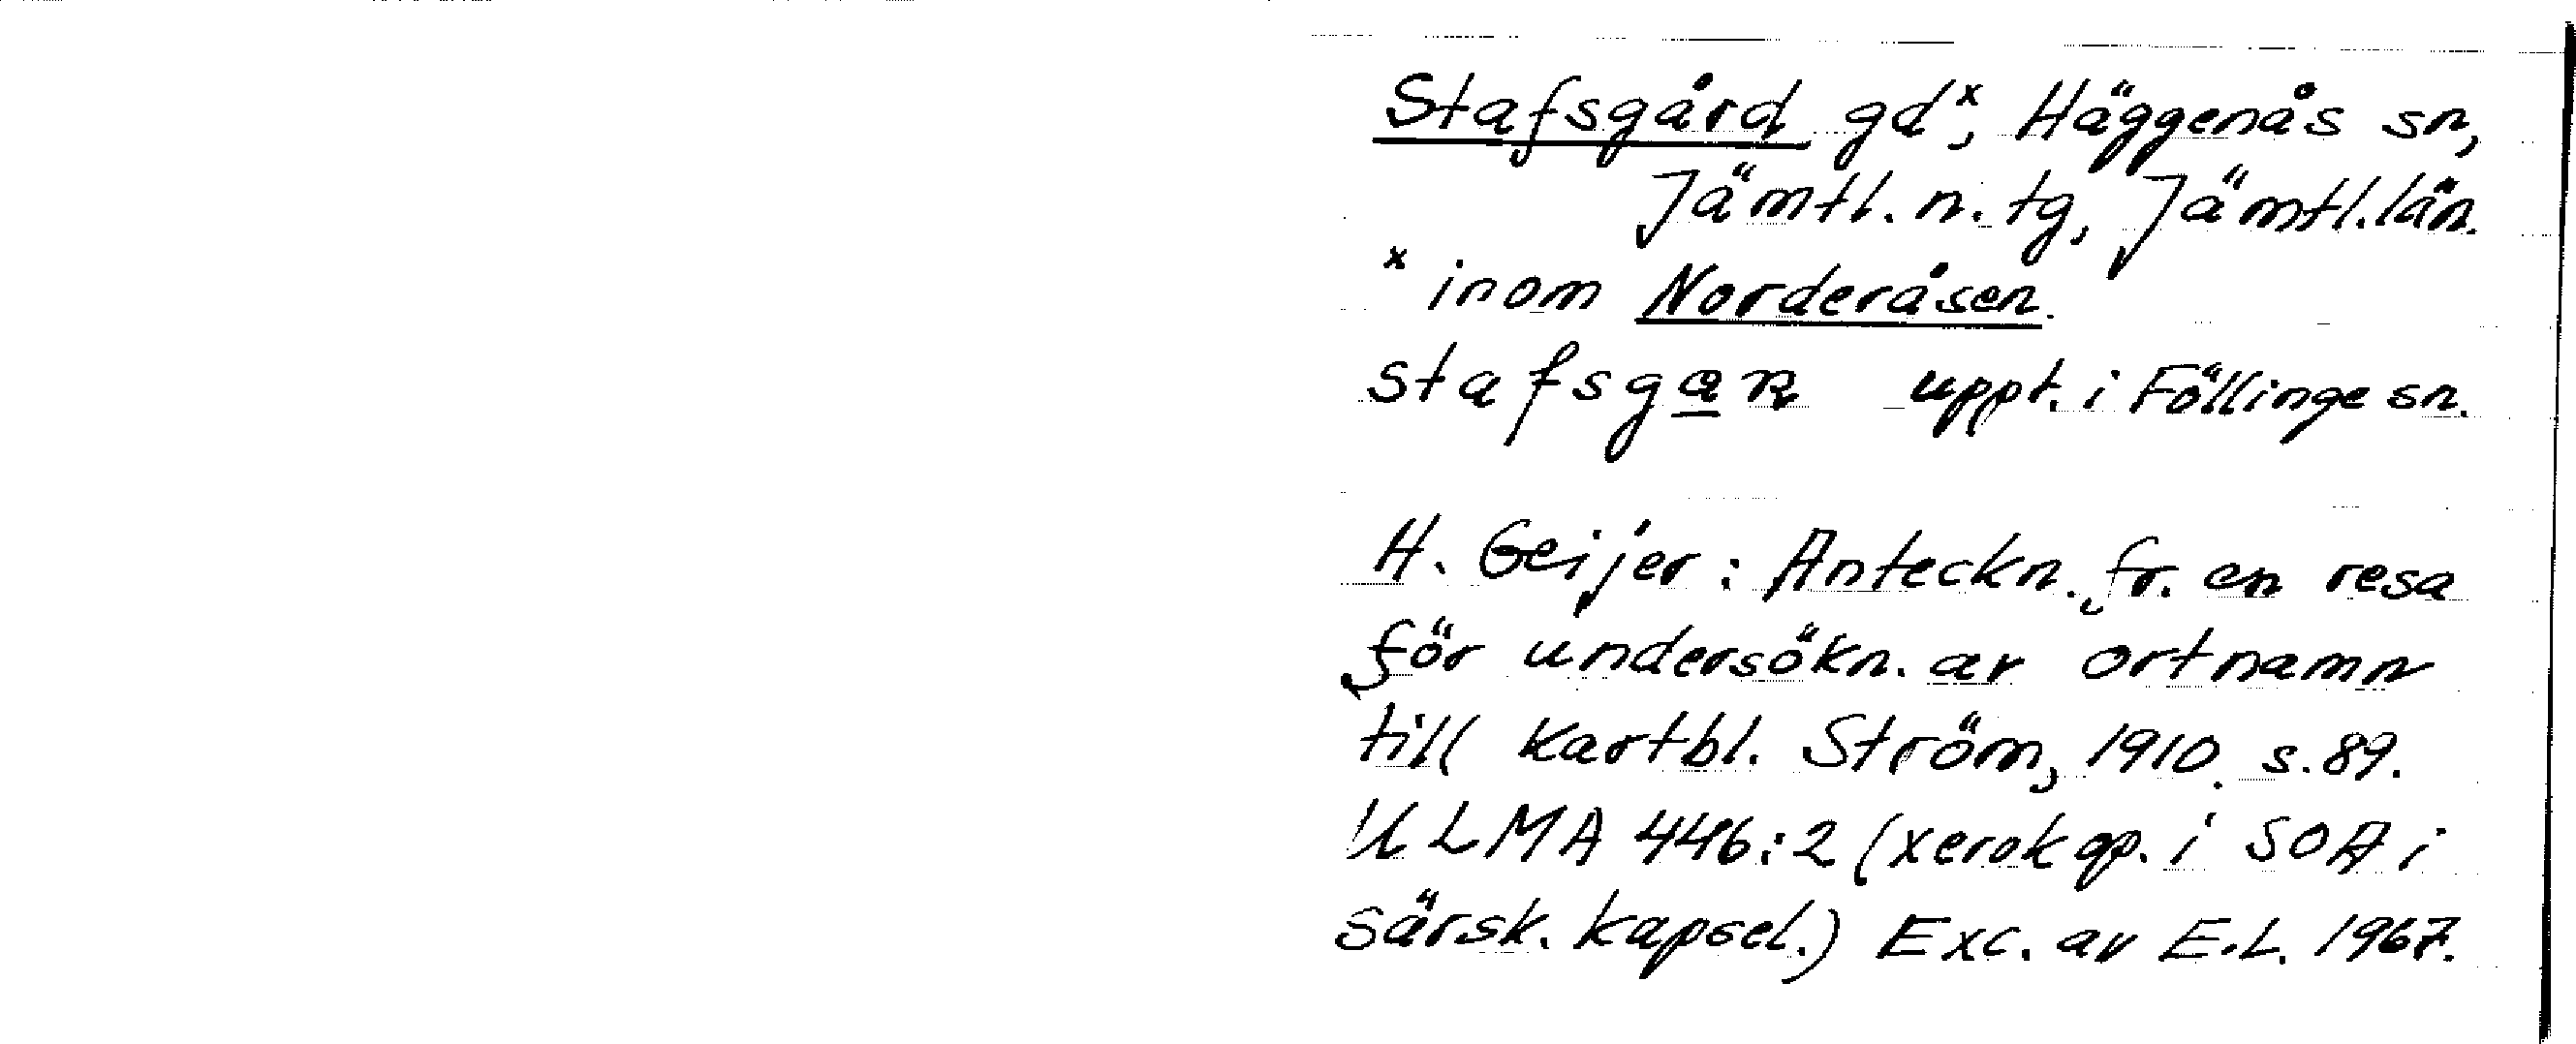 Stafsgård gdˣ, Häggenås sn,
Jämtl. n. tg, Jämtl. län.
ˣ inom Norderåsen.
stafsga̲ɴ uppt. i Föllinge sn.
H. Geijer: Anteckn. fr. en resa
för undersökn. av ortnamn
till Kartbl. Ström, 1910. s. 89.
ULMA 446:2 (xerokop. i SOA i
särsk. kapsel.) Exc. av E.L. 1967.